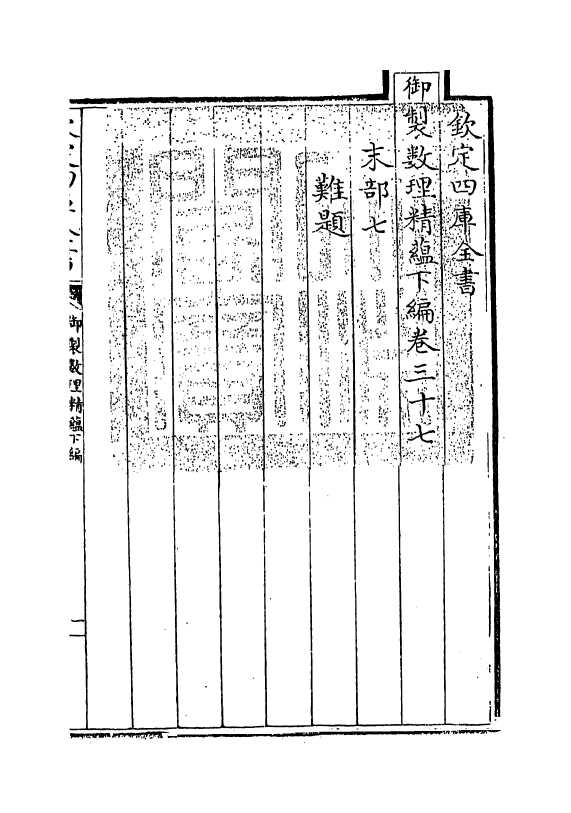 欽定四庫全書
御製數理精藴下編卷三十七
末部七
難題
御製數理精藴下編
一